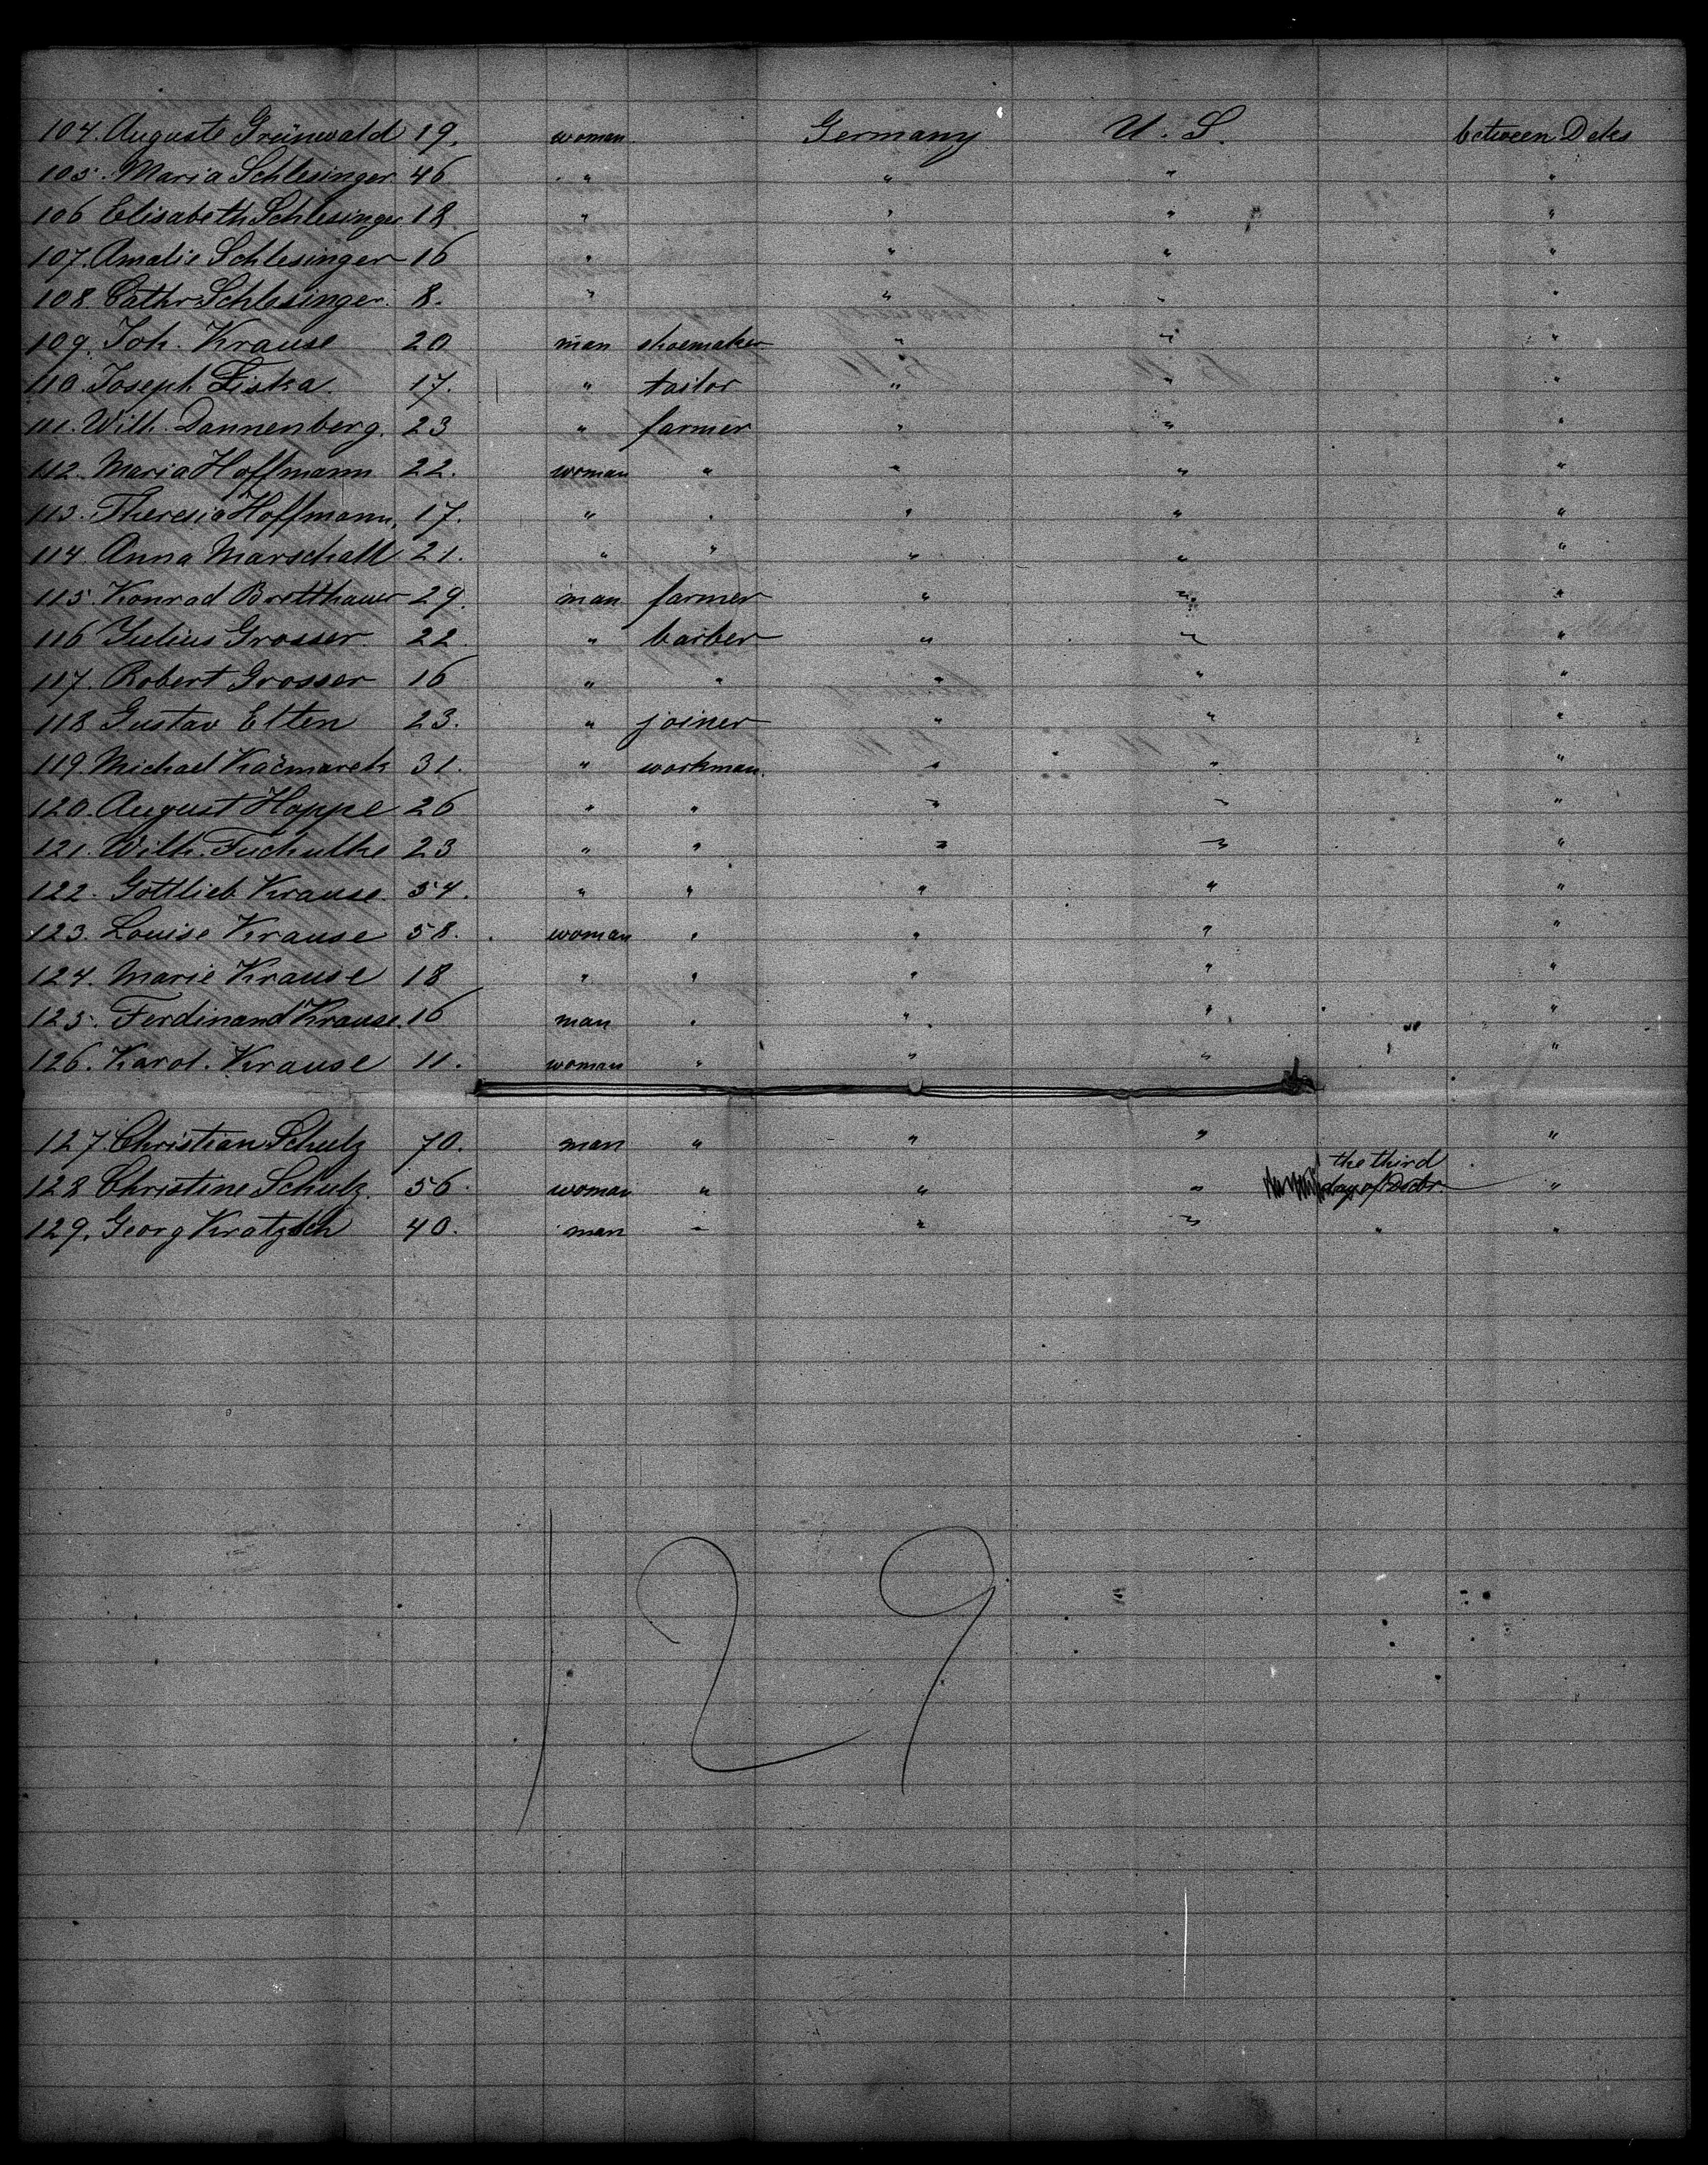 104. Auguste Grünwald 19. woman Germany U. S. between Deks
105. Maria Schlesinger 46 " " " "
106 Elisabeth Schlesinger 18 " " " "
107. Amalie Schlesinger 16 " " " "
108. Cathr. Schlesinger 8. " " " "
109. Joh. Krause 20 man shoemaker " " "
110. Joseph Liska 17. " tailor " " "
111. Wilh. Dannenberg. 23 " farmer " " "
112. Maria Hoffmann 22. woman " " " "
113. Theresia Hoffmann, 17. " " " " "
114. Anna Marschall 21. " " " " "
115. Konrad Bretthauer 29. man farmer " " "
116 Julius Grosser 22. " barber " " "
117. Robert Grosser 16 " " " " "
118 Gustav Elten 23. " joiner " " "
119. Michael Kačmarek 31. " workman. " " "
120. August Hoppe 26 " " " " "
121. Wilh. 23 " " " " "
122. Gottlieb Krause. 54. " " " " "
123. Louise Krause 58. woman " " " "
124. Marie Krause 18 " " " " "
125. Ferdinand Krause. 16 man " " " "
126. Karol. Krause 11. woman " " " "
127. Christian Schulz 70. man " " " "
the third
128 Christine Schulz. 56. woman " " " day of Decbr. "
129. Georg Kratzsch 40. man " " " " "
129